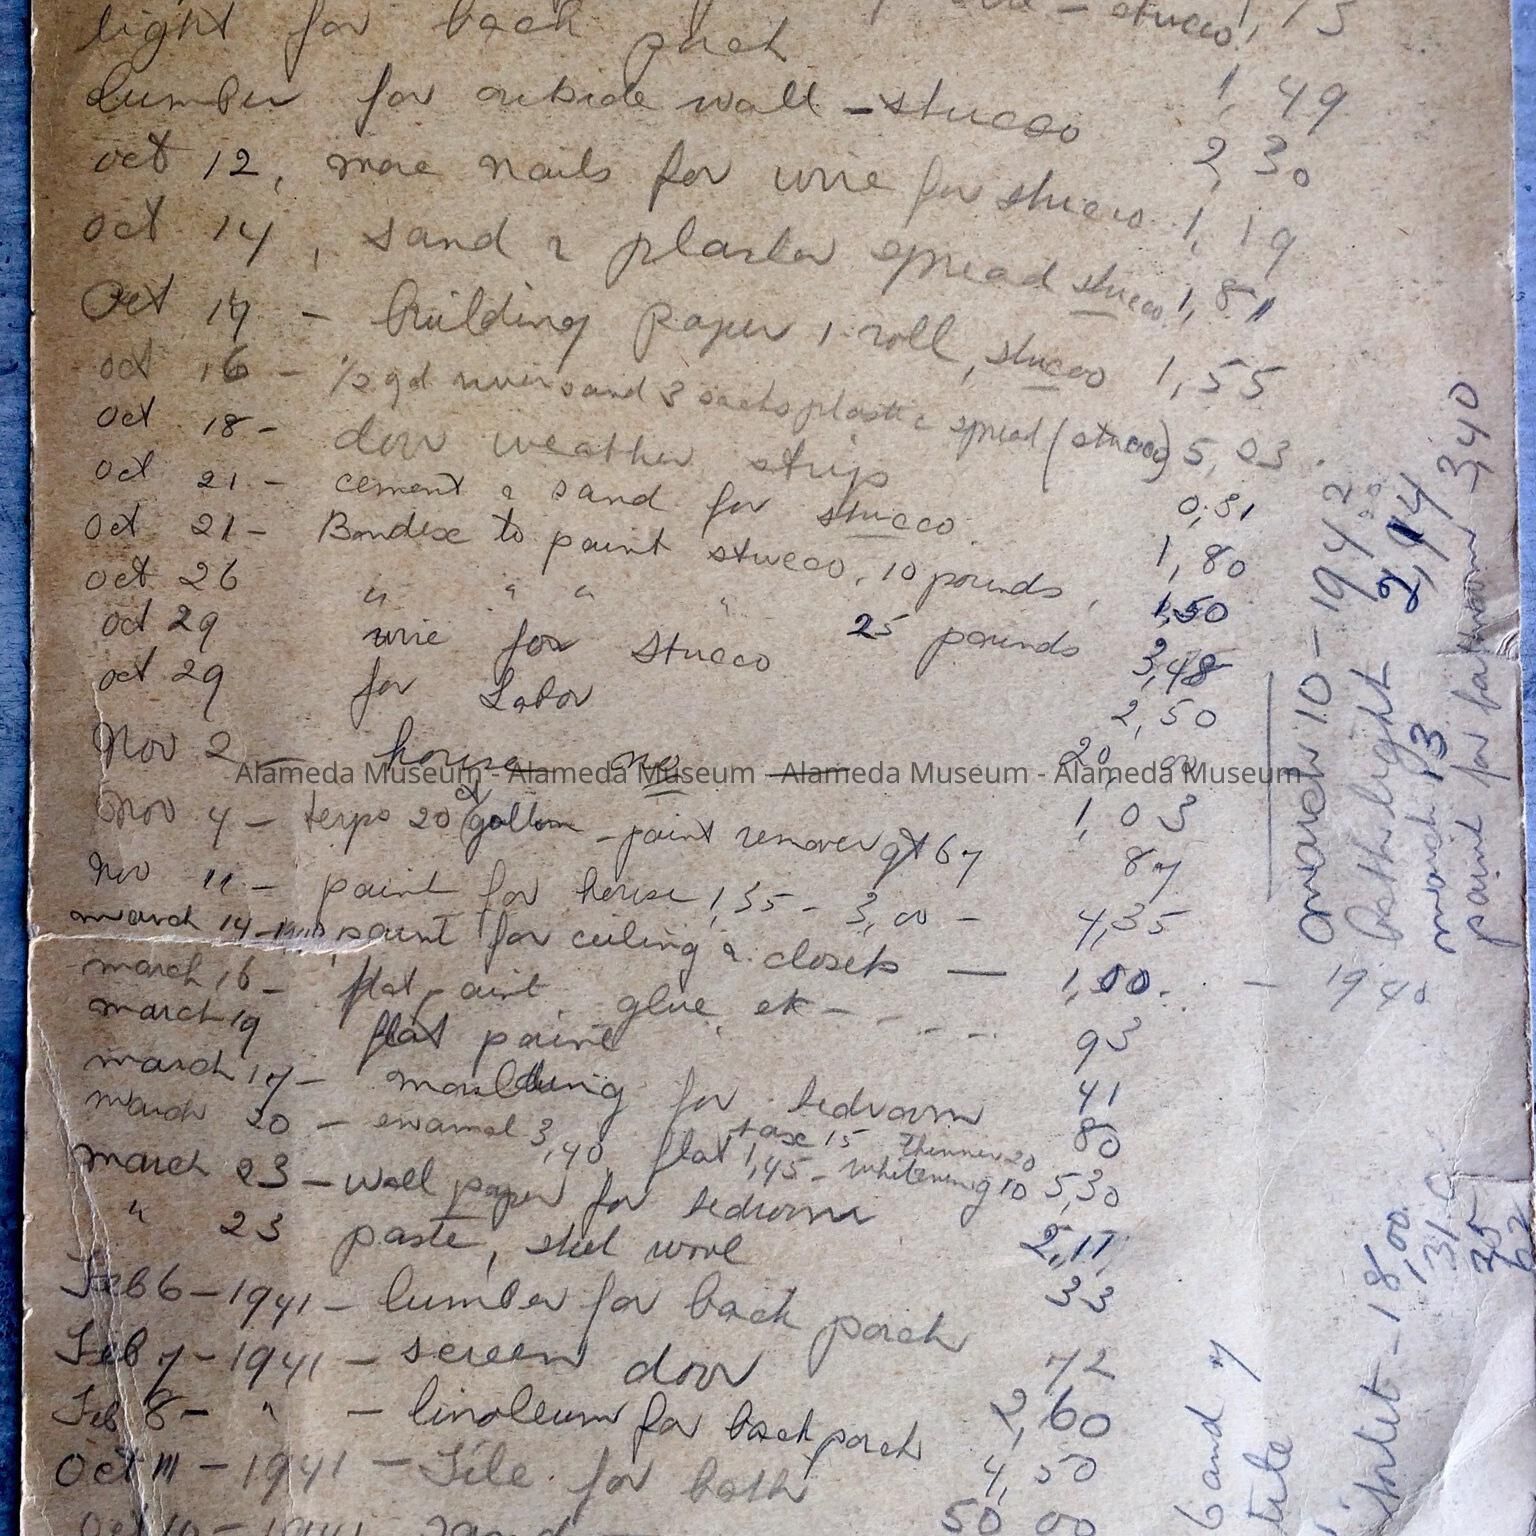 stucco, 1, 75
light for back porch 1, 49
Lumber for outside wall - stucco 2, 30
oct 12, more nails for wire for stucco 1, 19
oct 14, sand & plaster spread stucco 1, 81
Oct 14 - building paper 1 roll, stucco 1, 55
oct 16 - 1/2 yd river sand 3 sacks plastic spread (stucco) 5, 03
oct 18 - door weather strip 0, 31
oct 21 - cement & sand for stucco. 1, 80
oct 21 - Bondex to paint stucco, 10 pounds, 1,50
oct 26 " " " " 25 pounds 3,48
oct 29 wire for stucco 2, 50
oct 29 for Labor 20, 00
Nov 2 - house no 1, 03
Nov 4 - terps 20 gallon - paint remover qt 67 87
Nov 11 - paint for house 1,35 - 3,00 - 4,35
march 14 - paint for ceiling & closets — 1,00. - 1940
march 16 - flat paint glue etc - - - - 93
march 19 flat paint 41
march 17 - moulding for bedroom 80
march 20 - enamel 3,40, flat 1,45 - whitening 10 5,30
tax 15 thinner 20
march 23 - wall paper for bedroom 2,11
" 23 paste, steel wool 33
Feb 6 - 1941 - lumber for back porch 72
Feb 7 - 1941 - screen door 2, 60
Feb 8 - " - linoleum for back porch 4, 50
Oct 11 - 1941 - Tile for bath 50 00
Oct 10 - 1941 sand -
march 10 - 1942
Bath light 2,14
march 13
paint for bathroom - 3,40
6 and 7
tile
toilet - 18,00
1,31
35
62
Alameda Museum - Alameda Museum - Alameda Museum - Alameda Museum